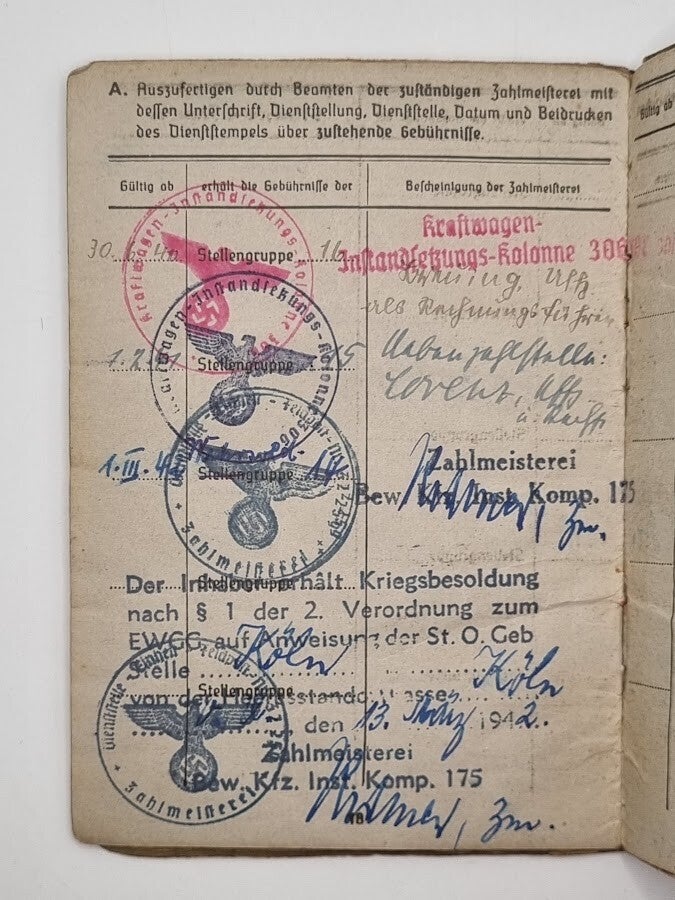 A. Auszufertigen durch Beamten der zuständigen Zahlmeisterei mit
dessen Unterschrift, Dienststellung, Dienststelle, Datum und Beidrucken
des Dienststempels über zustehende Gebührnisse.
Gültig ab erhält die Gebührnisse der Bescheinigung der Zahlmeisterei
Kraftwagen-
30.6.40 Stellengruppe 16 Instandsetzungs-Kolonne 306
Kraftwagen-Instandsetzungs-Kolonne 306
als Rechnungsführer
1.2.41 Stellengruppe 15 Nebenzahlstelle:
Kraftwagen-Instandsetzungs-Kolonne 306
Lorenz, Uffz.
Zahlmeisterei
1.III.41 Stellengruppe 14 Bew. Kfz. Inst. Komp. 175
Dienststelle Einheit - Feldpost-Nr.
Zahlmeisterei
Stellengruppe
Der Inhaber erhält Kriegsbesoldung
nach § 1 der 2. Verordnung zum
EWGG auf Anweisung der St. O. Geb
Stelle Köln
Stellengruppe
von der Heeresstandortkasse Köln
den 13. März 1942.
Dienststelle Einheit Feldpost-Nr.
Zahlmeisterei
Zahlmeisterei
Bew. Kfz. Inst. Komp. 175